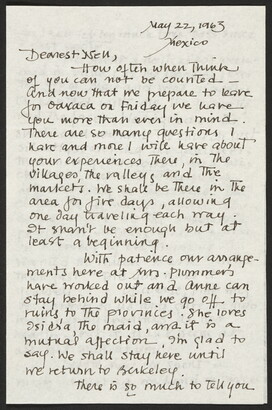 May 22, 1963
Mexico
Dearest Nell,
How often when I think
of you can not be counted —
And now that we prepare to leave
for Oaxaca on Friday we have
you more than ever in mind.
There are so many questions I
have and more I will have about
your experiences there, in the
villages, the valleys and the
markets. We shall be there in the
area for five days, allowing
one day traveling each way.
It shan't be enough but at
least a beginning.
With patience our arrange-
ments here at Mrs. Plummer's
have worked out and Anne can
stay behind while we go off to
ruins to the provinces. She loves
Isidra, the maid, and it is a
mutual affection, I'm glad to
say. We shall stay here until
we return to Berkeley.
There is so much to tell you